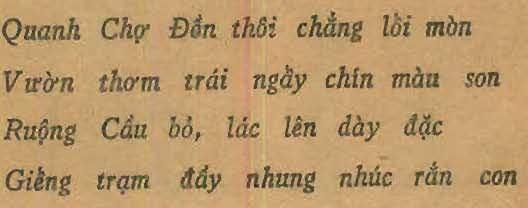 Quanh Chợ Đồn thôi chẳng lối mòn
Vườn thơm trái ngầy chín màu son
Ruộng Cầu bỏ, lác lên dày đặc
Giếng trạm đầy nhung nhúc rắn con